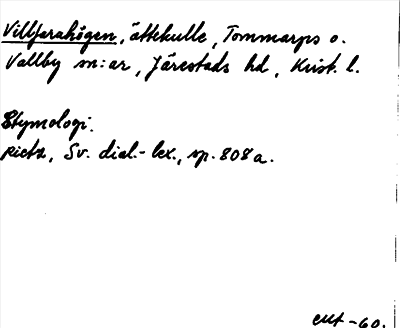 Villfarahögen, ättekulle, Tommarps o.
Vallby sn:ar, Järestads hd, Krist. l.
Etymologi.
Rietz, Sv. dial.-lex., sp. 808 a.
-60.